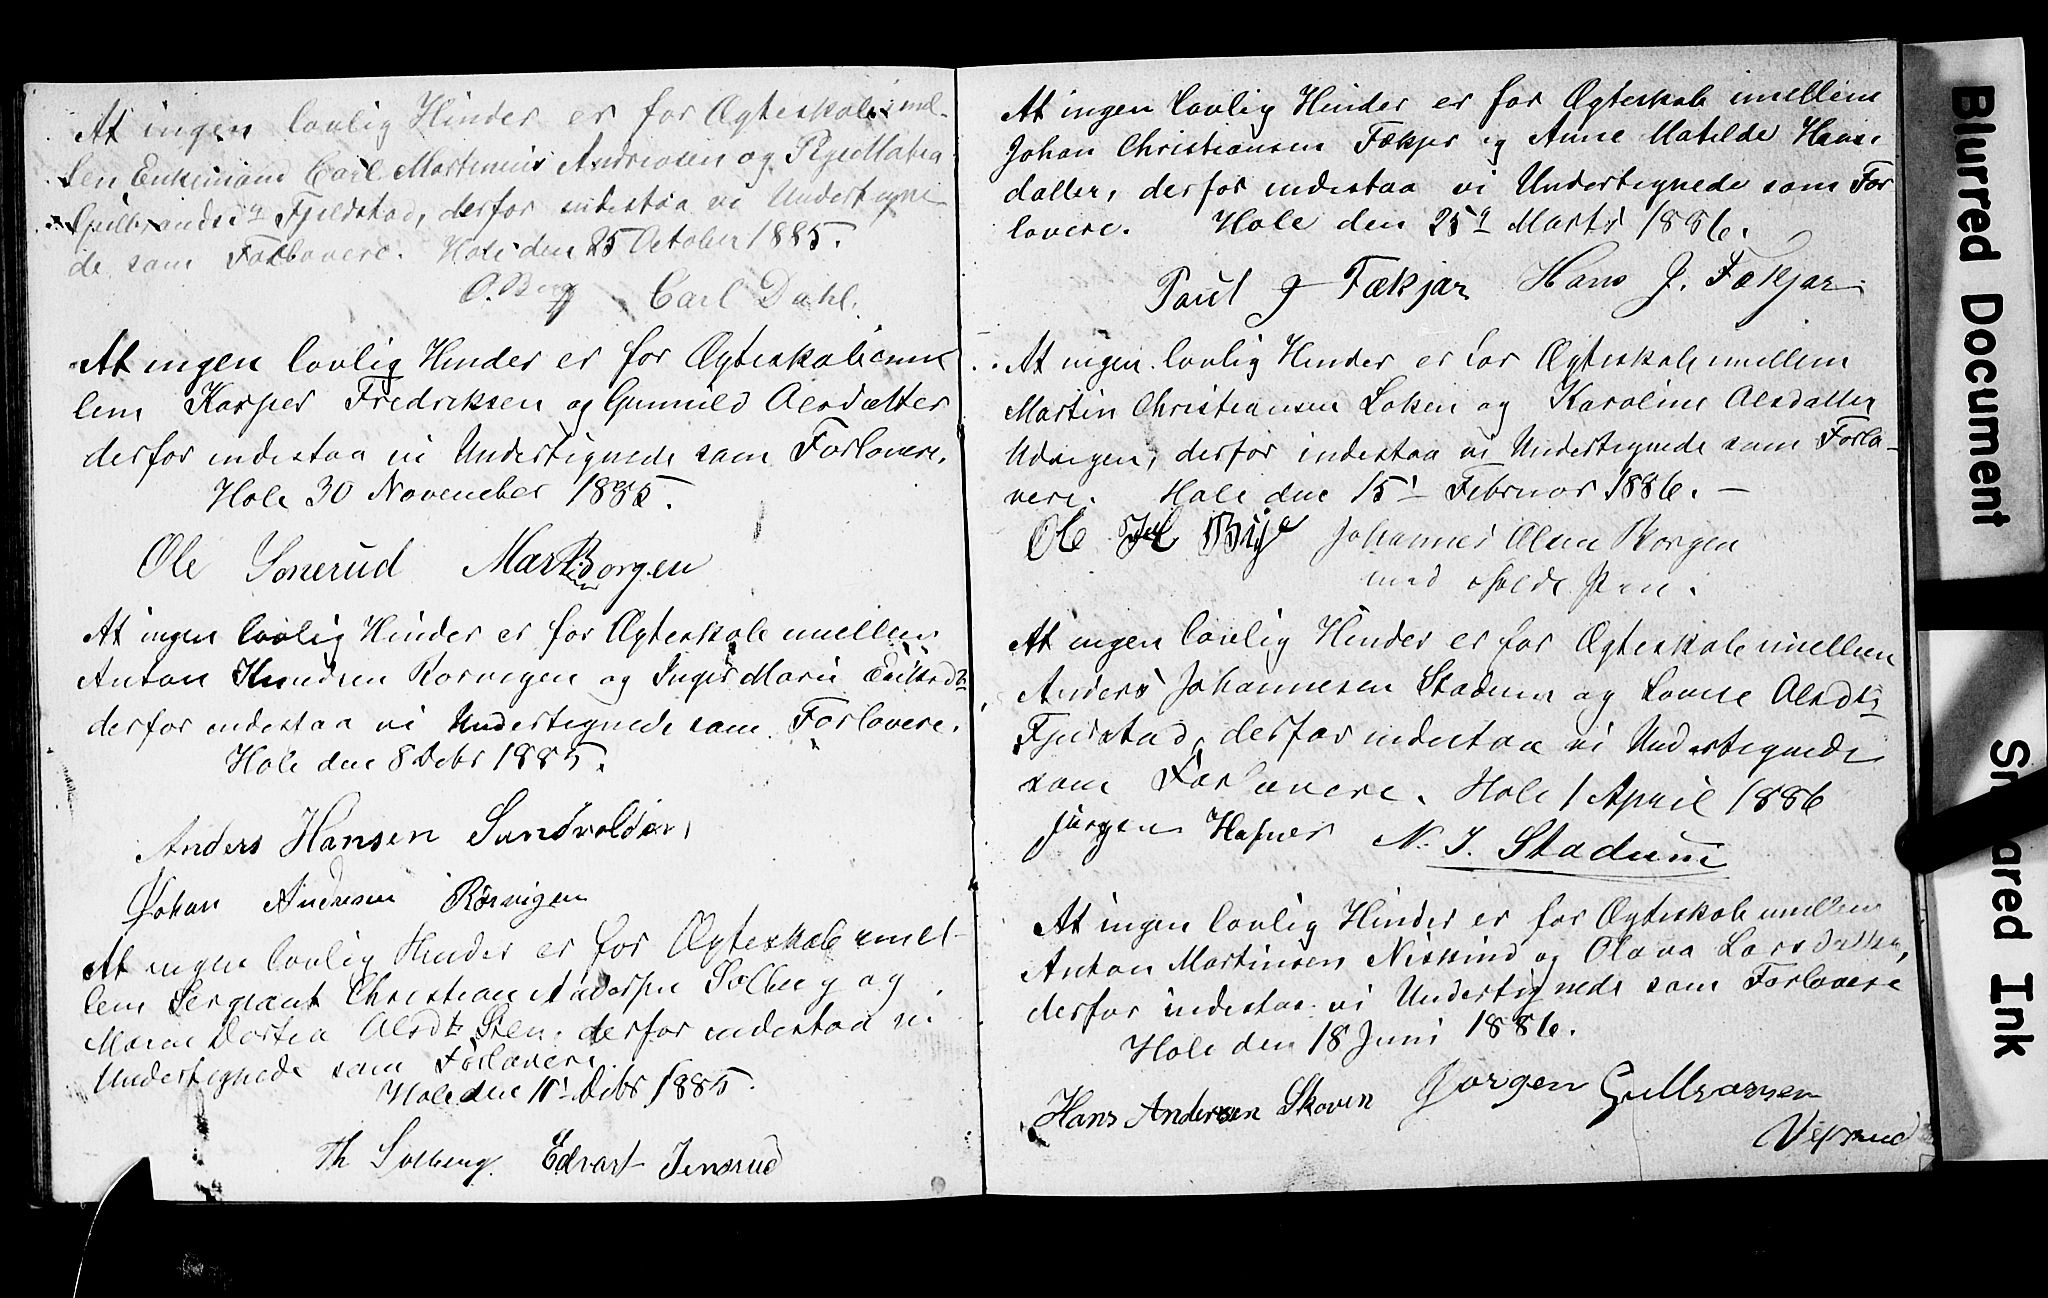 At ingen lovlig Hinder er for Ægteskab imel-
len Enkemand Carl Martinius Andreasen og
Gulbrandsd Fjeldstad, derfor indestaa vi Undertegne
de som Forlovere. Hole den 25 October 1885.
O. Berg Carl Dahl.
At ingen lovlig Hinder er for Ægteskab imel
lem Kasper Fredriksen og Gunnild Olsdatter
derfor indestaa vi Undertegnede som Forlovere.
Hole 30 November 1885.
Ole Sonerud Mart Borgen
At ingen lovlig Hinder er for Ægteskab imellem
Anton Knudsen Rorvigen og Inger Marie
derfor indestaa vi Undertegnede som Forlovere.
Hole den 8 Debr 1885.
Anders Hansen Sundvolden
Johan Andresen Rörvigen
At ingen lovlig Hinder er for Ægteskab imel-
lem Sergeant Christian Solberg og
Maren Dortea Olsdtr Sten, derfor indestaa vi
Undertegnede som Forlovere.
Hole den 11t Debr 1885.
Th Solberg. Edvart Jensrud
At ingen lovlig Hinder er for Ægteskab imellem
Johan Christiansen Fækjer og Anne Matilde Hans
datter, derfor indestaa vi Undertegnede som For
lovere. Hole den 25d Marts 1886.
Paul J Fækjar Hans J. Fækjar
At ingen lovlig Hinder er for Ægteskab imellem
Martin Christiansen Loken og Karoline Olsdatter
Udvigen, derfor indestaa vi Undertegnede som Forlo-
vere. Hole den 15t Februar 1886. —
Ole Bye Johannes Olsen Borgen
med Pen.
At ingen lovlig Hinder er for Ægteskab imellem
Anders Johannesen Stadum og Lovise Olsdtr
Fjeldstad, derfor indestaa vi Undertegnede
som Forlovere. Hole 1 April 1886
Jørgen Hafner N. J. Stadum
At ingen lovlig Hinder er for Ægteskab imellem
Anton Martinsen Neskind og Olava Larsdatter,
derfor indestaa vi Undertegnede som Forlovere
Hole den 18 Juni 1886.
Hans Andersen Skoven Jørgen Gulbransen
Vefsrud
Blurred Document
Smeared Ink